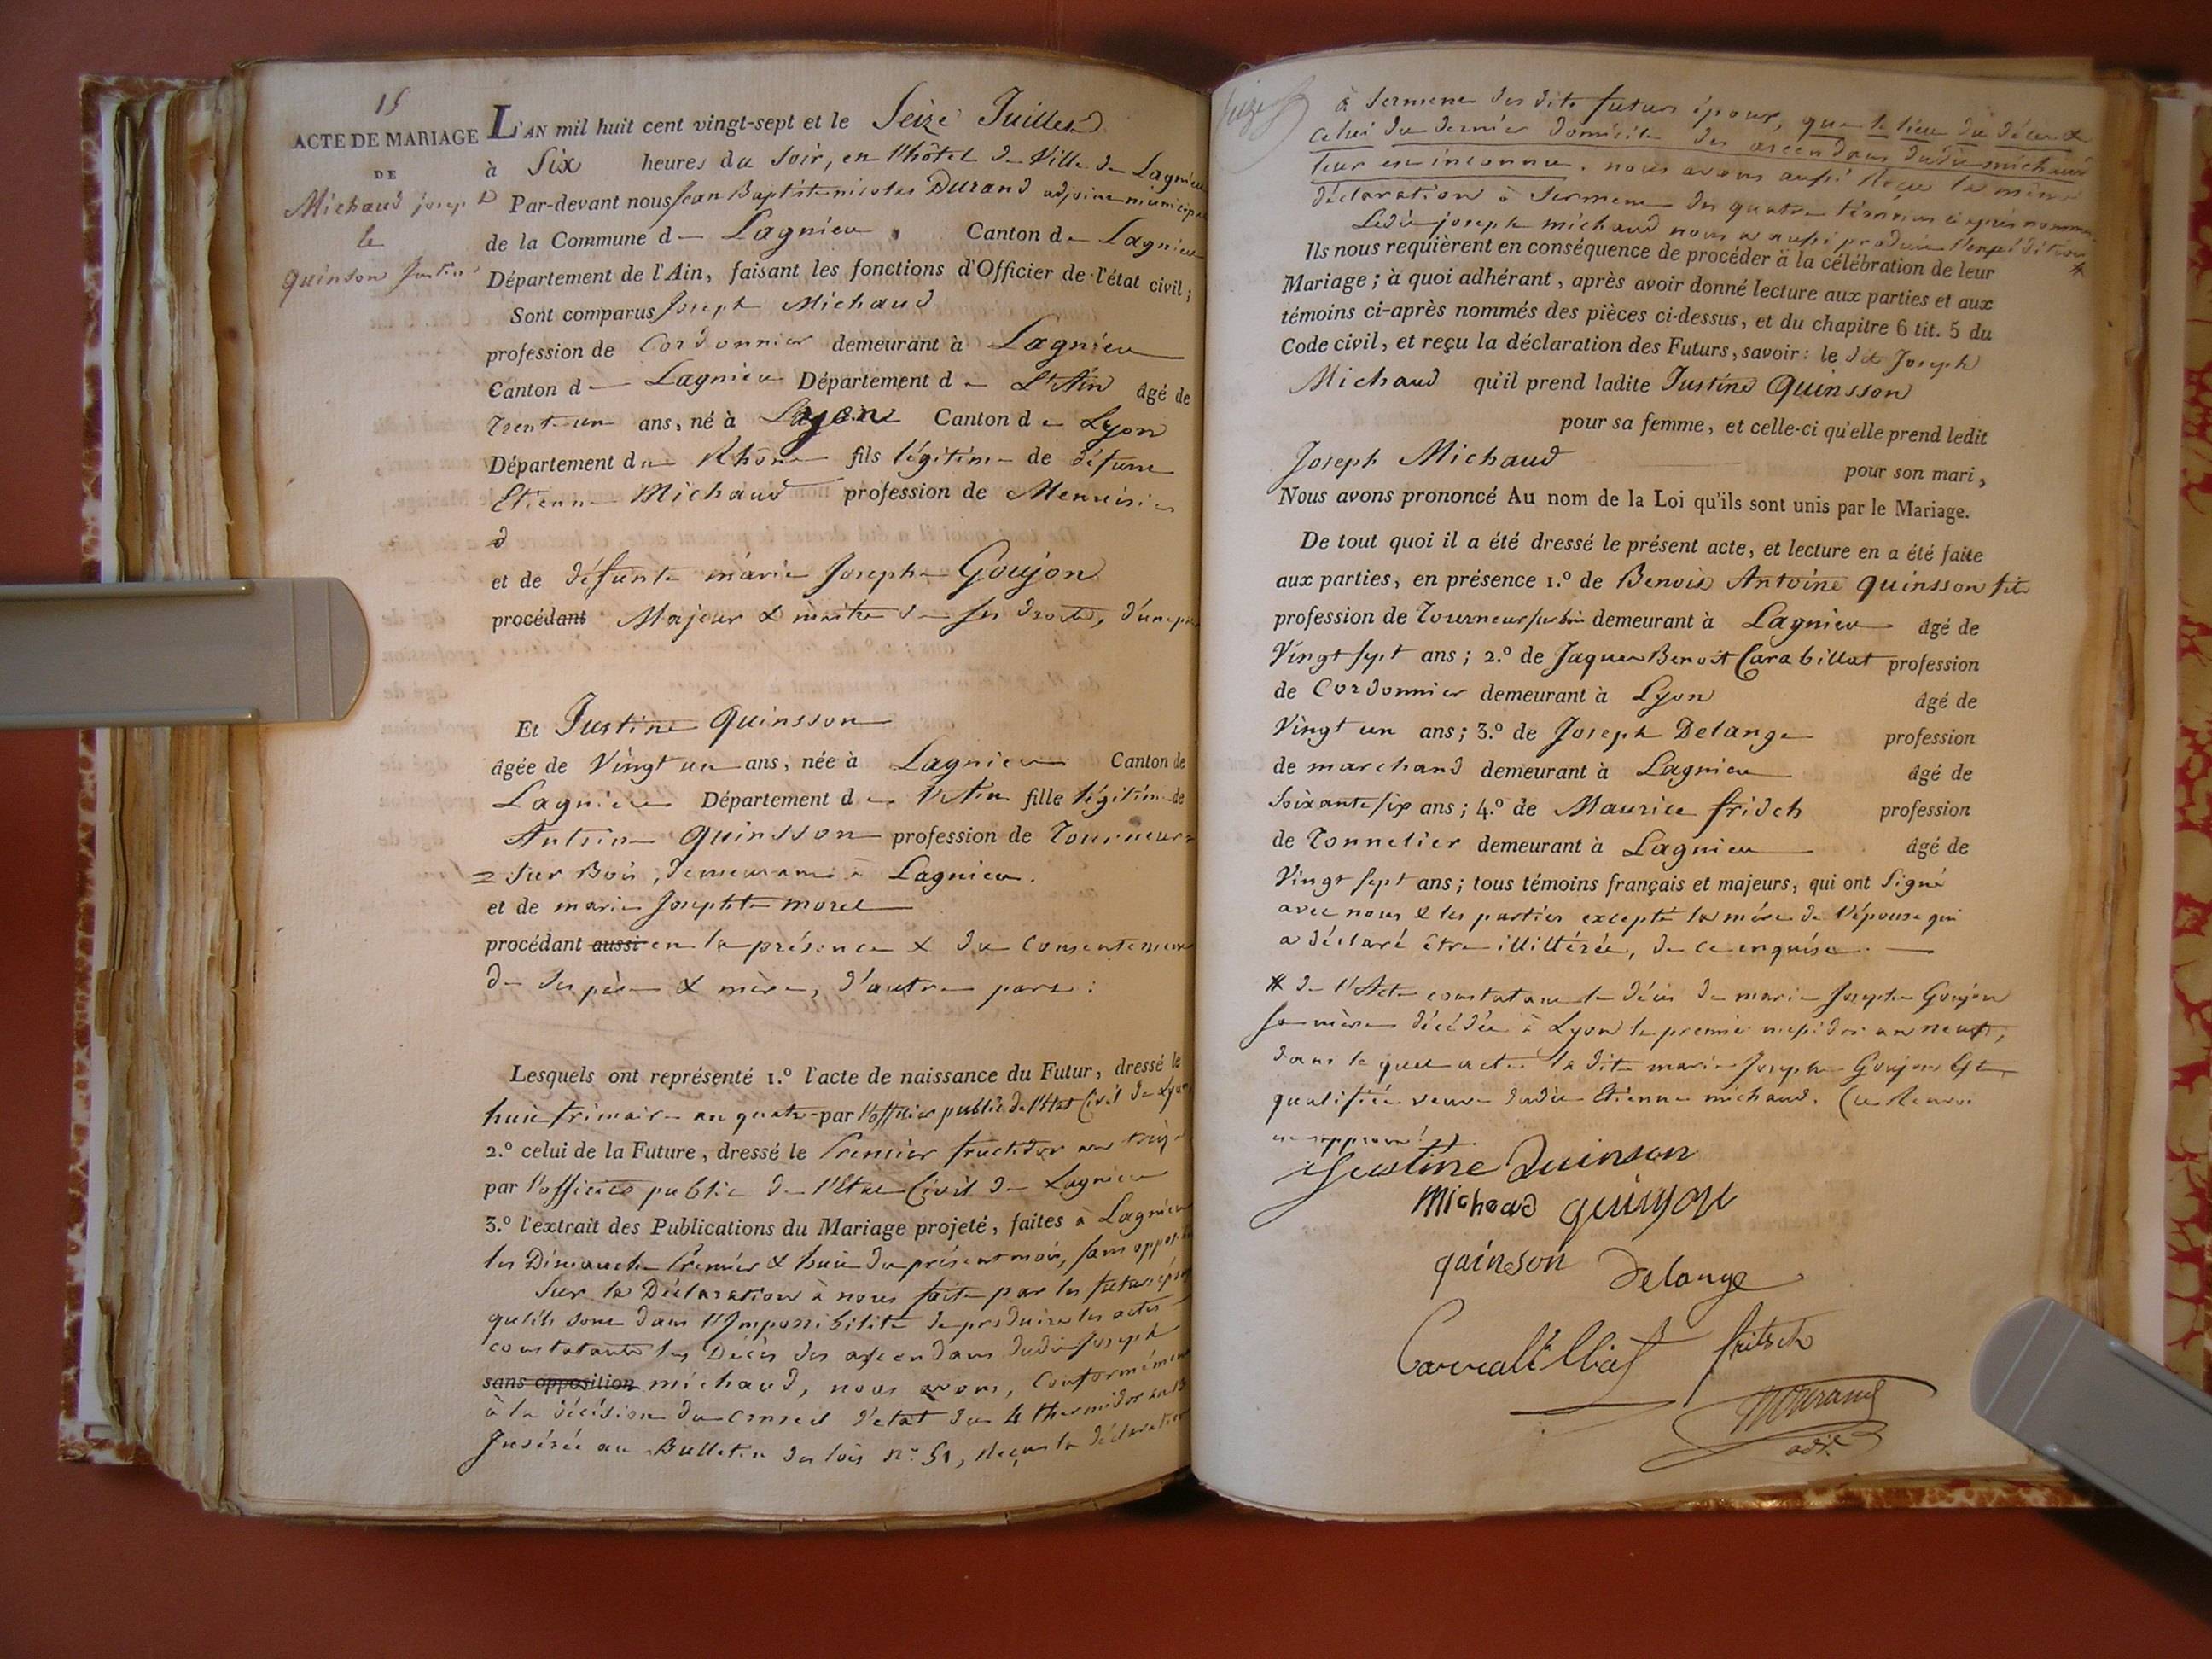 15
ACTE DE MARIAGE
DE
Michaud joseph
&
Quinson Justine
L'AN mil huit cent vingt-sept et le Seize Juillet
à Six heures du Soir, en l'hôtel de Ville de Lagnieu
Par-devant nous Jean Baptiste nicolas Durand adjoint municipal
de la Commune de Lagnieu, Canton de Lagnieu
Département de l'Ain, faisant les fonctions d'Officier de l'état civil;
Sont comparus Joseph Michaud
profession de Cordonnier demeurant à Lagnieu
Canton de Lagnieu Département de L'Ain âgé de
Trente un ans, né à Lyon Canton de Lyon
Département du Rhône fils légitime de défunt
Etienne Michaud profession de Menuisier
et de défunte marie Josephe Goujon
procédant Majeur & maitre de ses droits, d'une part
Et Justine Quinsson
âgée de Vingt un ans, née à Lagnieu Canton de
Lagnieu Département de l'Ain fille légitime de
Antoine Quinsson profession de Tourneur
sur Bois, demeurant à Lagnieu.
et de marie Josephte morel
procédant aussi en la présence & du Consentement
de ses père & mère, d'autre part :
Lesquels ont représenté 1.º l'acte de naissance du Futur, dressé le
huit frimaire an quatre par l'officier public de l'Etat Civil de Lyon
2.º celui de la Future, dressé le Premier fructidor an treize
par l'officier public de l'Etat Civil de Lagnieu
3.º l'extrait des Publications du Mariage projeté, faites à Lagnieu
les Dimanche Premier & huit du présent mois, sans opposition
Sur la Déclaration à nous faite par les futurs époux
qu'ils sont dans l'Impossibilité de produire les actes
constatants les Décès des ascendans dudit Joseph
sans opposition michaud, nous avons, Conformément
à la décision du Conseil d'etat du 4 thermidor an 13
Insérée au Bulletin des lois nº 51, Reçu la déclaration
à serment des dits futurs époux, que le lieu du décès &
celui du dernier domicile des ascendans dudit michaud
leur est inconnu. nous avons aussi Reçu la même
déclaration à serment des quatre témoins ci après nommés.
Ledit joseph michaud nous a aussi produit l'expédition
#
Ils nous requièrent en conséquence de procéder à la célébration de leur
Mariage; à quoi adhérant, après avoir donné lecture aux parties et aux
témoins ci-après nommés des pièces ci-dessus, et du chapitre 6 tit. 5 du
Code civil, et reçu la déclaration des Futurs, savoir: le dit Joseph
Michaud qu'il prend ladite Justine Quinsson
pour sa femme, et celle-ci qu'elle prend ledit
Joseph Michaud pour son mari,
Nous avons prononcé Au nom de la Loi qu'ils sont unis par le Mariage.
De tout quoi il a été dressé le présent acte, et lecture en a été faite
aux parties, en présence 1.º de Benoit Antoine Quinsson fils
profession de Tourneur sur bois demeurant à Lagnieu âgé de
Vingt sept ans; 2.º de Jaques Benoit Carabillat profession
de Cordonnier demeurant à Lyon âgé de
Vingt un ans; 3.º de Joseph Delange profession
de marchand demeurant à Lagnieu âgé de
Soixante six ans; 4.º de Maurice fridch profession
de Tonnelier demeurant à Lagnieu âgé de
Vingt sept ans; tous témoins français et majeurs, qui ont Signé
avec nous & les parties excepté la mère de l'épouse qui
a déclaré être illitérée, de ce enquise.
# de l'Acte constatant le décès de marie Josephe Goujon
sa mère décédée à Lyon le premier messidor an neuf,
dans le quel acte la dite marie Josephe Goujon Est
qualifiée veuve dudit Etienne michaud. (Ce Renvoi
est approuvé).
Justine Quinson
Michoad quinson
quinson Delange
fritsch
Durand
adjt